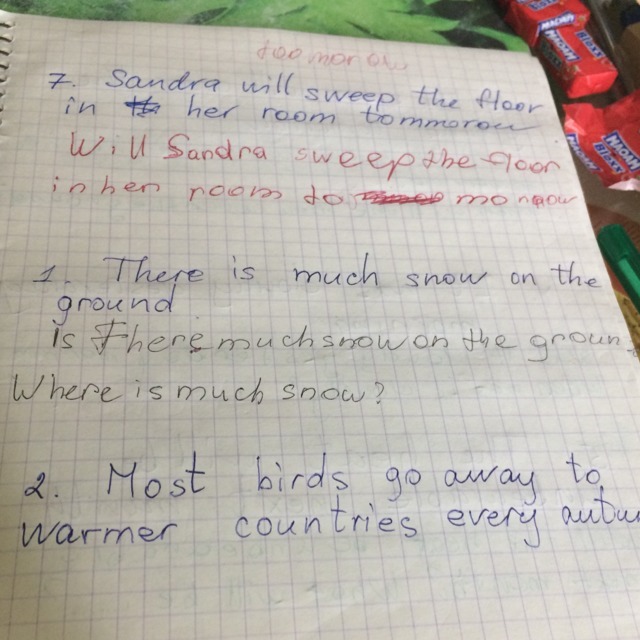 toomorow
7. Sandra will sweep the floor
in her room tommorow
Will Sandra sweep the floor
in her room to morrow
1. There is much snow on the
ground
is There much snow on the groun
Where is much snow?
2. Most birds go away to
warmer countries every autu